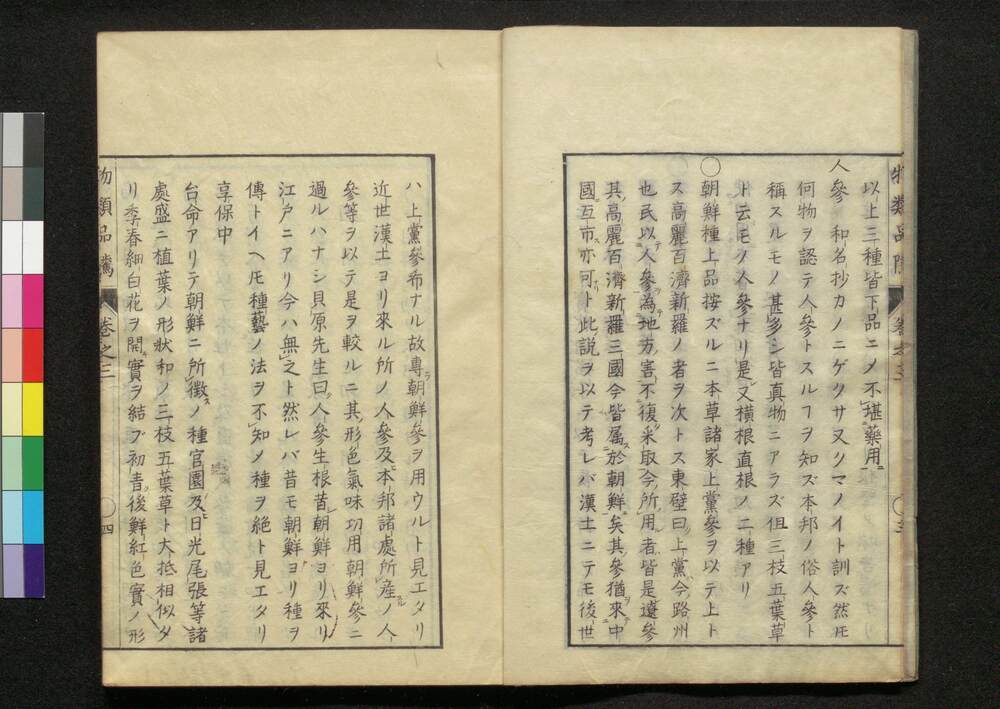 物類品隲
卷之三
三
以上三種皆下品ニメ不堪藥用
人參 和名抄カノニゲクサ又クマノイト訓ズ然𪜈
何物ヲ認テ人參トスルヿヲ知ズ本邦ノ俗人參ト
稱スルモノ甚多シ皆真物ニアラズ但三枝五葉草
ト云モノ人參ナリ是又横根直根ノ二種アリ
○朝鮮種上品按ズルニ本草諸家上黨參ヲ以テ上ト
ス高麗百濟新羅ノ者ヲ次トス東壁曰上黨今路州
也民以人參為地方害不復采取今所用者皆是遼參
其高麗百濟新羅三國今皆属於朝鮮矣其參猶來中
國互市亦可ト此説ヲ以テ考レバ漢土ニテモ後世
ハ上黨參布ナル故専朝鮮參ヲ用ウルト見エタリ
近世漢土ヨリ來ル所ノ人參及本邦諸處所産ノ人
參等ヲ以テ是ヲ較ルニ其形色氣味功用朝鮮參ニ
過ルハナシ貝原先生曰人參生根昔朝鮮ヨリ來リ
江戸ニアリ今ハ無之ト然レバ昔モ朝鮮ヨリ種ヲ
傳トイヘ𪜈種藝ノ法ヲ不知メ種ヲ絶ト見エタリ
享保中
台命アリテ朝鮮ニ所徴ノ種官園及日光尾張等諸
處盛ニ植葉ノ形狀和ノ三枝五葉草ト大抵相似タ
リ季春細白花ヲ開實ヲ結ブ初青後鮮紅色實ノ形
物類品隲
卷之三
四